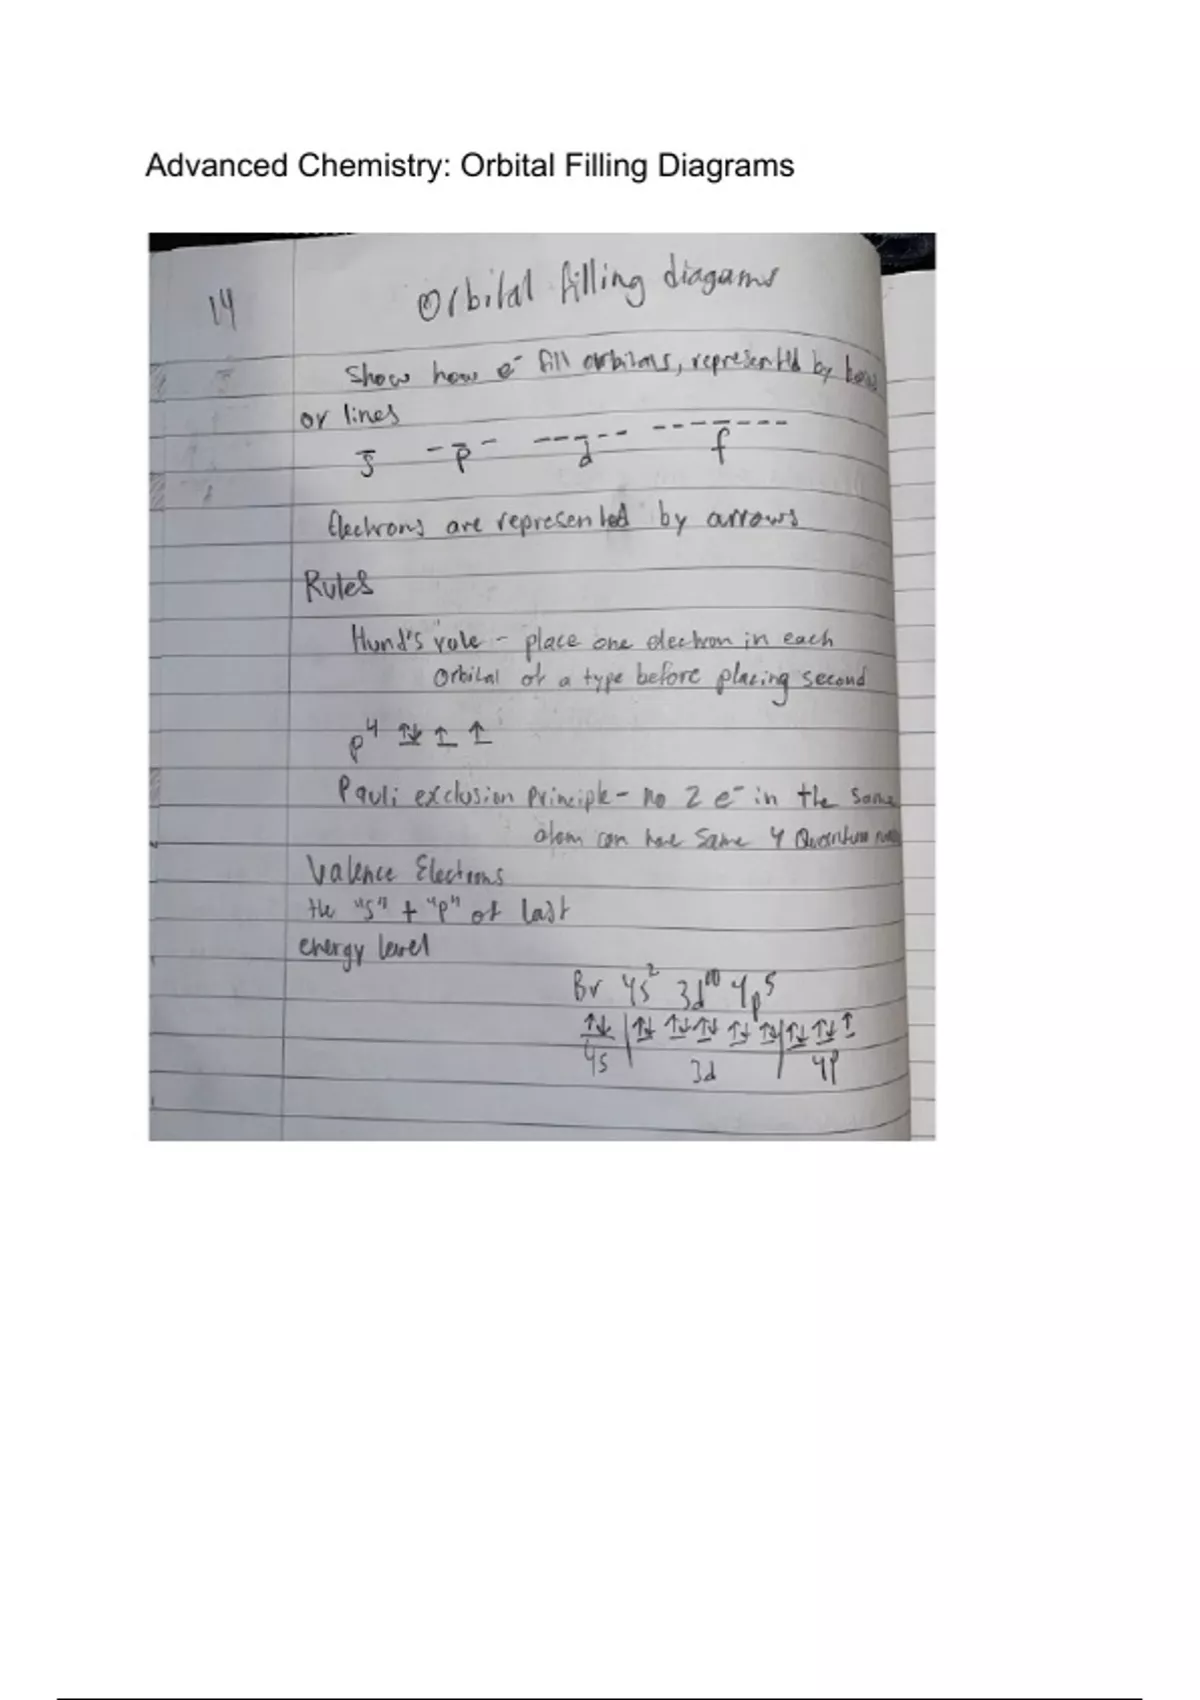 Advanced Chemistry: Orbital Filling Diagrams
14
Orbital filling diagams
Show how e⁻ fill orbitals, represented by
or lines
s p d f
Electrons are represented by arrows
Rules
Hund's rule - place one electron in each
orbital of a type before placing second
p⁴ ↑↓ ↑ ↑
Pauli exclusion principle - no 2 e⁻ in the same
atom can have same 4 Quantum
Valence Electrons
the "s" + "p" of last
energy level
Br 4s² 3d¹⁰ 4p⁵
↑↓ | ↑↓ ↑↓ ↑↓ ↑↓ ↑↓ | ↑↓ ↑↓ ↑
4s 3d 4p